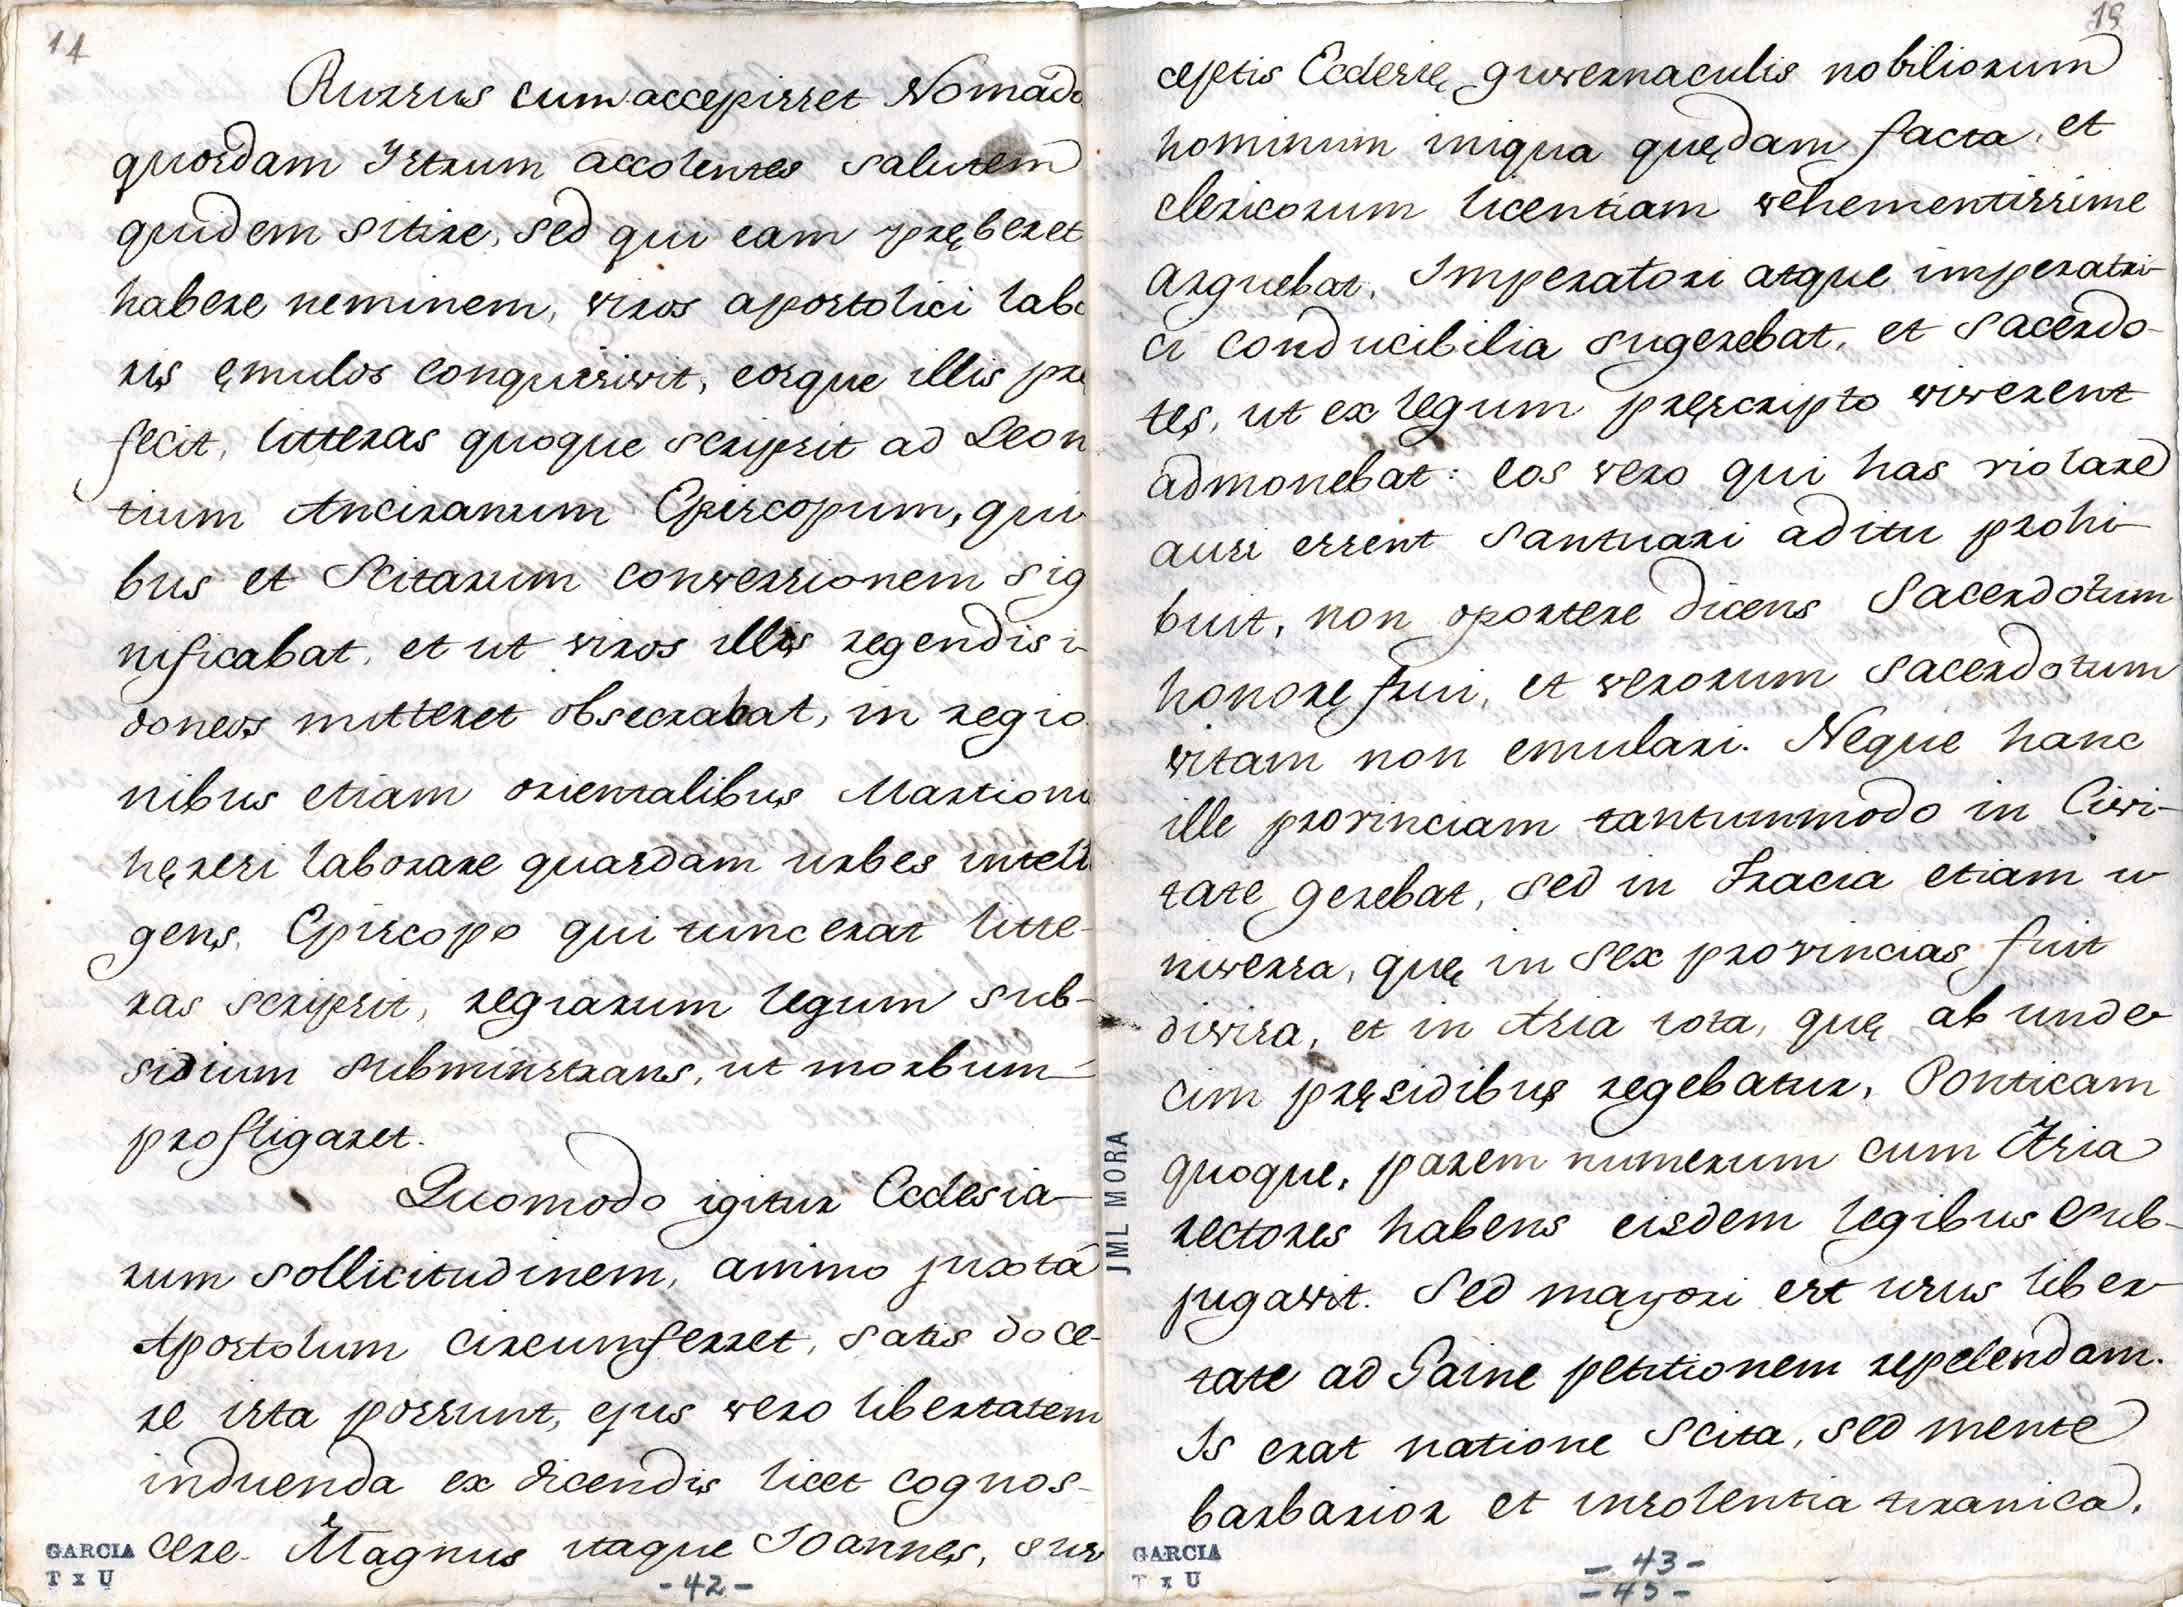 14
Rursus cum accepisset Nomado
quosdam Istrum accolentes salutem
quidem sitire, sed qui eam pręberet
habere neminem, viros apostolici labo
ris ęmulos conquisivit, eosque illis prę
fecit, litteras quoque scripsit ad Leon
tium Anciranum Episcopum, qui
bus et Scitarum conversionem sig
nificabat, et ut viros illis regendis i
doneos mitteret obsecrabat, in regio
nibus etiam orientalibus Martioni
hęresi laborare quasdam urbes inteli
gens, Episcopo qui tunc erat litte-
ras scripsit, regiarum legum sub-
sidium subministrans, ut morbum
profligaret.
Quomodo igitur Ecclesia-
rum sollicitudinem, animo juxta
Apostolum circumferret, satis doce-
re ista possunt, ejus vero libertatem
induenda ex dicendis licet cognos-
cere. Magnus itaque Joannes, sus
GARCIA
T x U
-42-
19
ceptis Ecclesię guvernaculis nobiliorum
hominum iniqua quędam facta, et
clericorum licentiam vehementissime
arguebat, Imperatori atque imperatri-
ci conducibilia sugerebat, et sacerdo-
tes, ut ex legum pręscripto viverent
admonebat: eos vero qui has violare
ausi essent santuari aditu prohi-
buit, non oportere dicens Sacerdotum
honore frui, et verorum sacerdotum
vitam non emulari. Neque hanc
ille provinciam tantummodo in Civi-
tate gerebat, sed in Tracia etiam u-
niversa, quę in sex provincias fuit
divisa, et in Asia tota, quę ab unde-
cim pręsidibus regebatur, Ponticam
quoque, parem numerum cum Asia
rectores habens eisdem legibus sub-
jugavit. Sed mayori est usus liber-
tate ad Gaine petitionem repelendam.
Is erat natione Scita, sed mente
barbarior et insolentia tiranica,
JML MORA
GARCIA
T x U
- 43 -
- 45 -